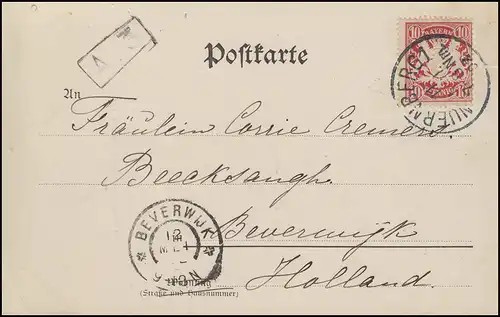 10 BAYERN 10
10 PFENNIG 10
NUERNBERG
Postkarte
An
Fräulein Corrie Cremers
Beecksangh.
Beverwijk
Holland.
BEVERWIJK
12
Wohnung
(Straße und Hausnummer)